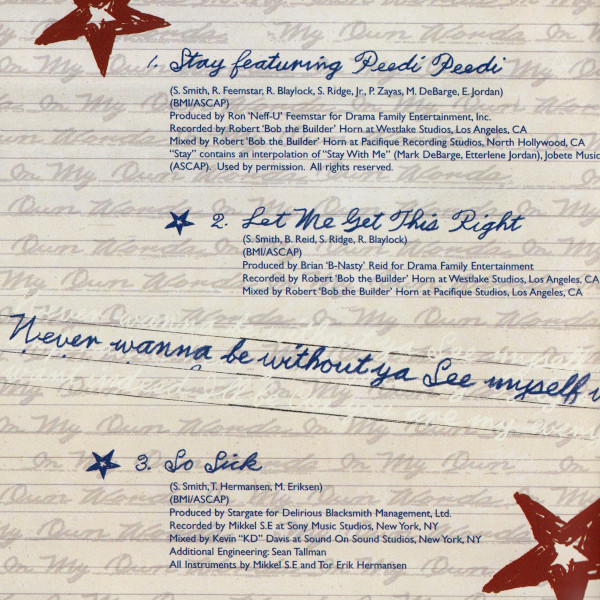 1. Stay featuring Peedi Peedi
(S. Smith, R. Feemstar, R. Blaylock, S. Ridge, Jr., P. Zayas, M. DeBarge, E. Jordan)
(BMI/ASCAP)
Produced by Ron 'Neff-U' Feemstar for Drama Family Entertainment, Inc.
Recorded by Robert 'Bob the Builder' Horn at Westlake Studios, Los Angeles, CA
Mixed by Robert 'Bob the Builder' Horn at Pacifique Recording Studios, North Hollywood, CA
"Stay" contains an interpolation of "Stay With Me" (Mark DeBarge, Etterlene Jordan), Jobete Music
(ASCAP). Used by permission. All rights reserved.
2. Let Me Get This Right
(S. Smith, B. Reid, S. Ridge, R. Blaylock)
(BMI/ASCAP)
Produced by Brian 'B-Nasty' Reid for Drama Family Entertainment
Recorded by Robert 'Bob the Builder' Horn at Westlake Studios, Los Angeles, CA
Mixed by Robert 'Bob the Builder' Horn at Pacifique Studios, Los Angeles, CA
Never wanna be without ya See myself
3. So Sick
(S. Smith, T. Hermansen, M. Eriksen)
(BMI/ASCAP)
Produced by Stargate for Delirious Blacksmith Management, Ltd.
Recorded by Mikkel S.E at Sony Music Studios, New York, NY
Mixed by Kevin "KD" Davis at Sound On Sound Studios, New York, NY
Additional Engineering: Sean Tallman
All Instruments by Mikkel S.E and Tor Erik Hermansen